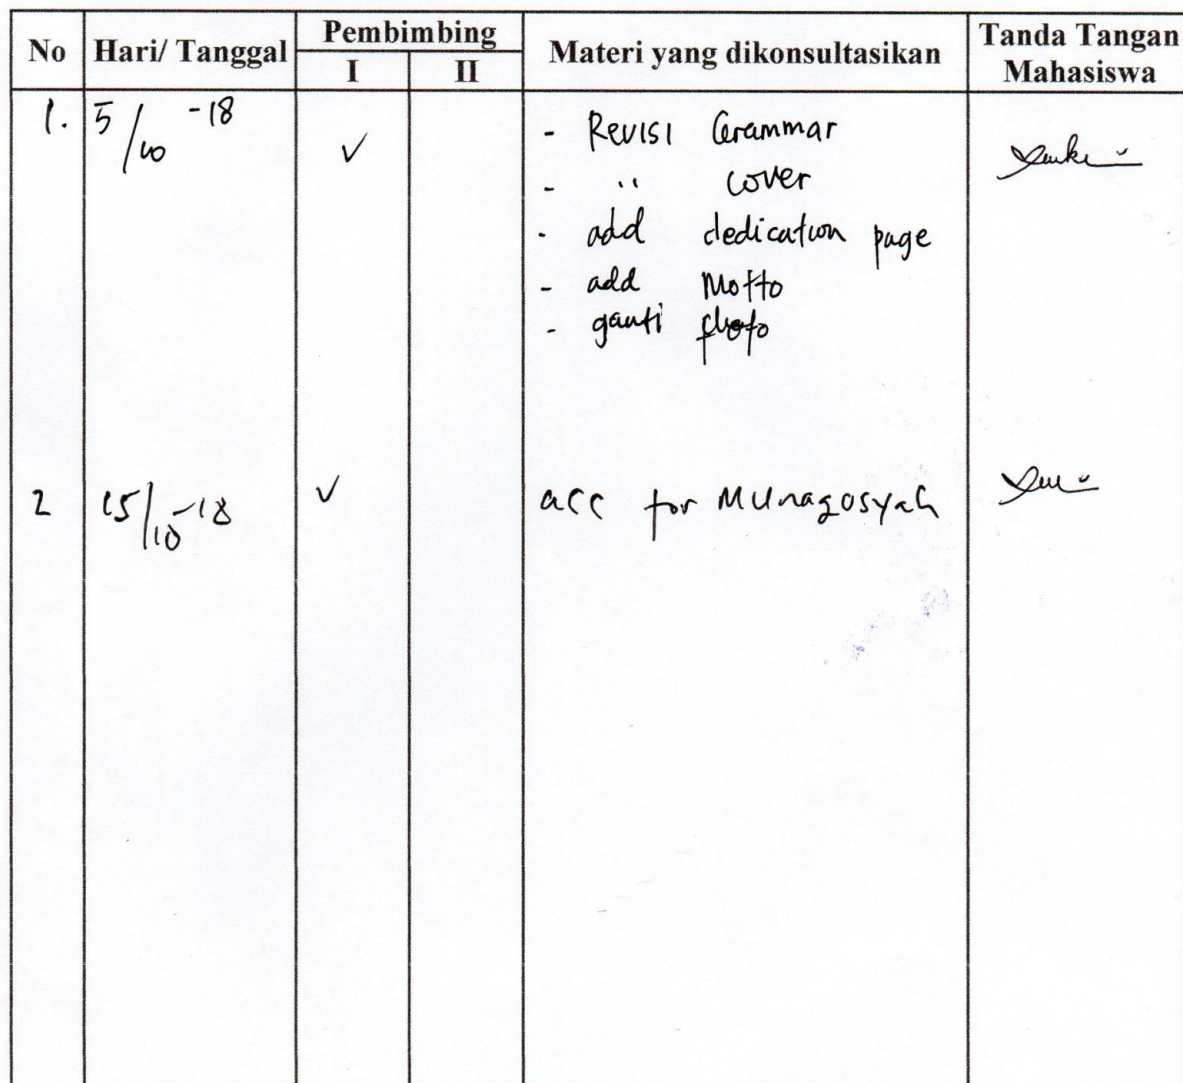 No Hari/ Tanggal Pembimbing Materi yang dikonsultasikan Tanda Tangan Mahasiswa
I II
1. 5/10 -18 ✓ - Revisi Grammar
- " cover
- add dedication page
- add Motto
- ganti photo
2 15/10 -18 ✓ acc for Munaqosyah